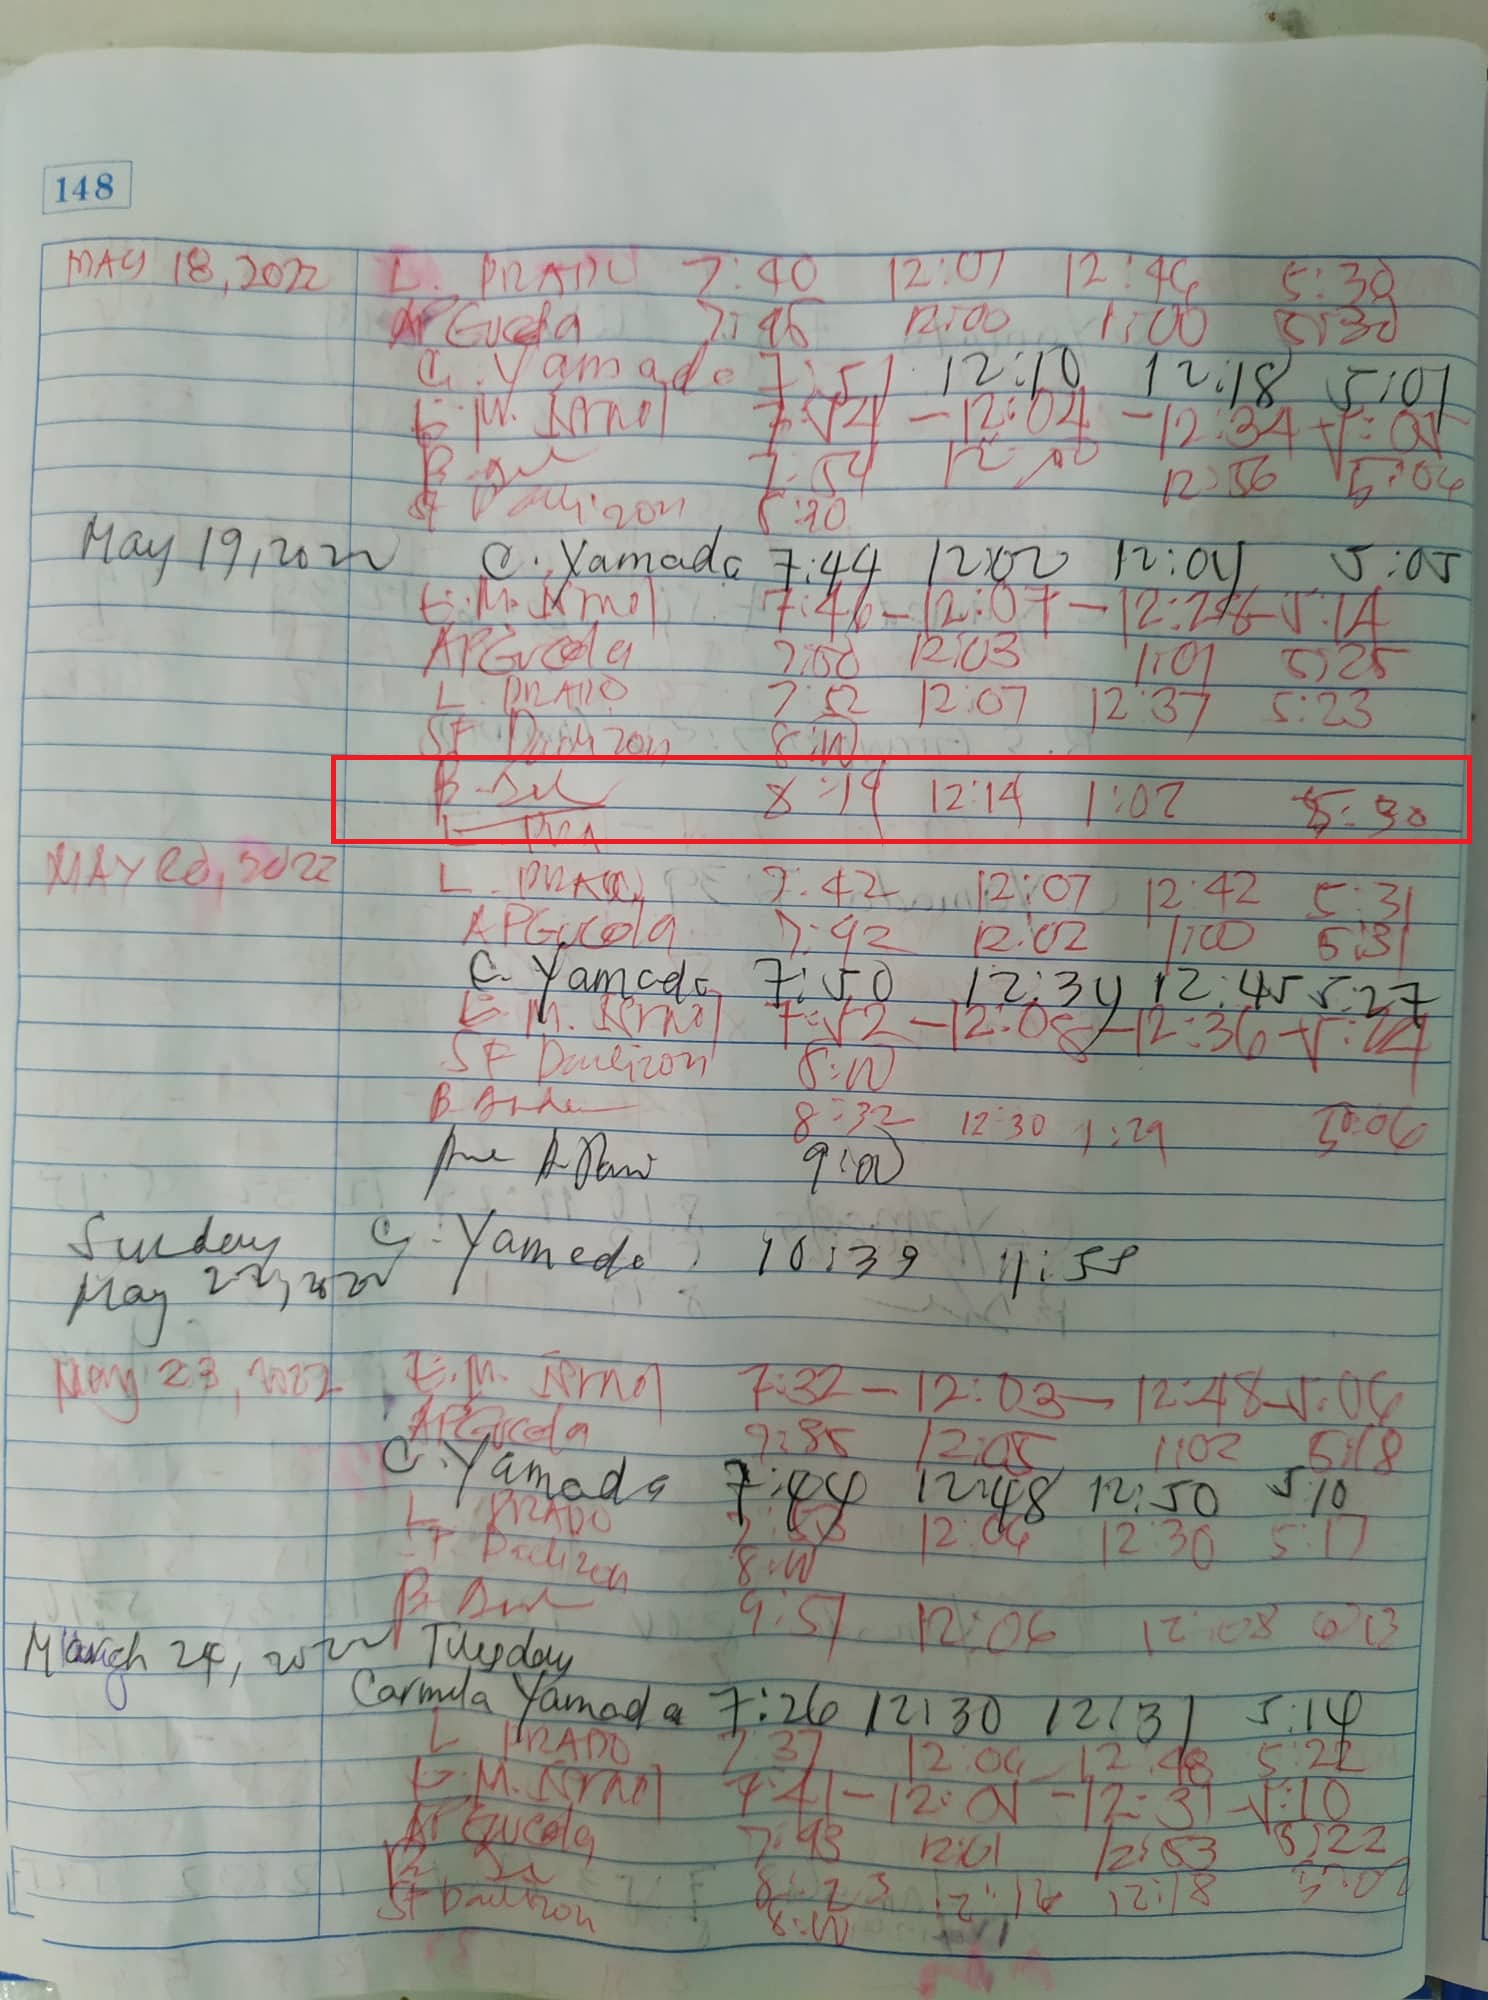 148
MAY 18, 2022 L. PRADO 7:40 12:07 12:46 5:30
APGucola 7:46 12:00 1:00 5:30
C. Yamada 7:51 12:10 12:18 5:01
E.M. 7:54 - 12:04 - 12:34 - 5:05
B. 7:54 12:00 12:56 5:04
SF 8:20
May 19, 2022 C. Yamada 7:44 12:02 12:04 5:05
E.M. 7:46 - 12:07 - 12:28 - 5:14
APGucola 7:50 12:03 1:01 5:25
L. PRADO 7:52 12:07 12:37 5:23
SF 8:00
B. 8:19 12:14 1:02 5:30
L PRA
MAY 20, 2022 L. PRADO 7:42 12:07 12:42 5:31
APGucola 7:42 12:02 1:00 5:31
C. Yamada 7:50 12:34 12:45 5:27
E.M. 7:52 - 12:08 - 12:36 - 5:24
SF 8:00
B. 8:32 12:30 1:29 5:06
9:00
Sunday C. Yamada 10:39 11:55
May 22, 2022
May 23, 2022 E.M. 7:32 - 12:03 - 12:48 - 5:06
APGucola 12:05 1:02 5:18
C. Yamada 7:44 12:48 12:50 5:10
L PRADO 12:06 12:30 5:17
8:00
B. 9:51 12:06 12:08
March 24, 2022 Tuesday
Carmela Yamada 7:26 12:30 12:31 5:14
L PRADO 7:37 12:06 12:48 5:22
E.M. 7:41 - 12:01 - 12:31 - 5:10
APGucola 7:43 12:01 12:53 5:22
B. 8:23 12:16 12:18 5:02
SF 8:00